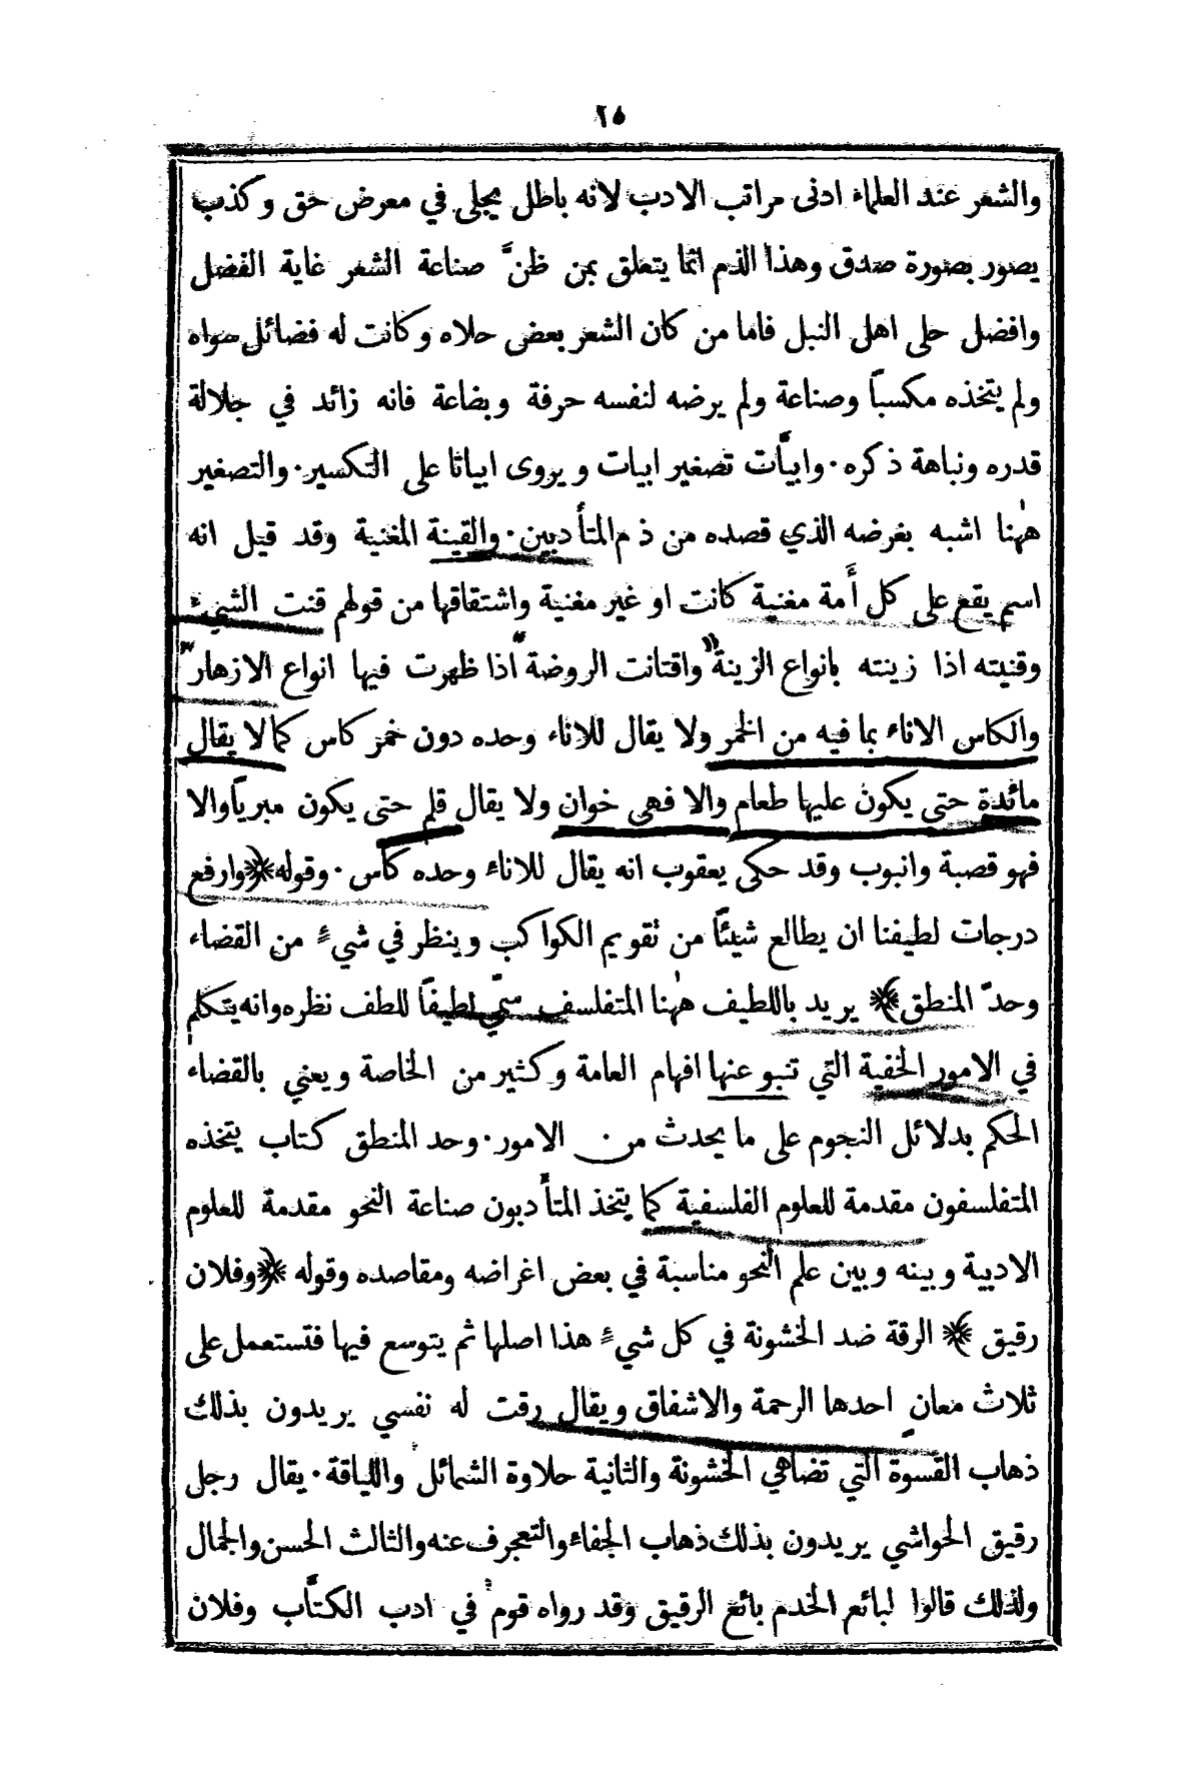 ٢٥
والشعر عند العلماء ادنى مراتب الادب لانه باطل يجلى في معرض حق وكذب
يصور بصورة صدق وهذا الذم انما يتعلق بمن ظنَّ صناعة الشعر غاية الفضل
وافضل حلى اهل النبل فاما من كان الشعر بعض حلاه وكانت له فضائل سواه
ولم يتخذه مكسباً وصناعة ولم يرضه لنفسه حرفة وبضاعة فانه زائد في جلالة
قدره ونباهة ذكره · وابيَّات تصغير ابيات ويروى ابياتا على التكسير · والتصغير
هٰهنا اشبه بغرضه الذي قصده من ذم المتأدبين · والقينة المغنية وقد قيل انه
اسم يقع على كل أَمة مغنية كانت او غير مغنية واشتقاقها من قولهم قنت الشيء
وقنيته اذا زينته بانواع الزينة واقتانت الروضة اذا ظهرت فيها انواع الازهار
والكاس الاناء بما فيه من الخمر ولا يقال للاناء وحده دون خمر كاس كما لا يقال
مائدة حتى يكون عليها طعام والا فهى خوان ولا يقال قلم حتى يكون مبرياً والا
فهو قصبة وانبوب وقد حكى يعقوب انه يقال للاناء وحده كأس · وقوله ﴿وارفع
درجات لطيفنا ان يطالع شيئًا من تقويم الكواكب وينظر في شيءٍ من القضاء
وحدّ المنطق﴾ يريد باللطيف هٰهنا المتفلسف سمّي لطيفًا للطف نظره وانه يتكلم
في الامور الخفية التي تنبو عنها افهام العامة وكثير من الخاصة ويعني بالقضاء
الحكم بدلائل النجوم على ما يحدث من الامور · وحد المنطق كتاب يتخذه
المتفلسفون مقدمة للعلوم الفلسفية كما يتخذ المتأدبون صناعة النحو مقدمة للعلوم
الادبية وبينه وبين علم النحو مناسبة في بعض اغراضه ومقاصده وقوله ﴿وفلان
رقيق﴾ الرقة ضد الخشونة في كل شيءٍ هذا اصلها ثم يتوسع فيها فتستعمل على
ثلاث معانٍ احدها الرحمة والاشفاق ويقال رقت له نفسي يريدون بذلك
ذهاب القسوة التي تضاهي الخشونة والثانية حلاوة الشمائل واللياقة · يقال رجل
رقيق الحواشي يريدون بذلك ذهاب الجفاء والتعجرف عنه والثالث الحسن والجمال
ولذلك قالوا لبائع الخدم بائع الرقيق وقد رواه قوم في ادب الكتَّاب وفلان